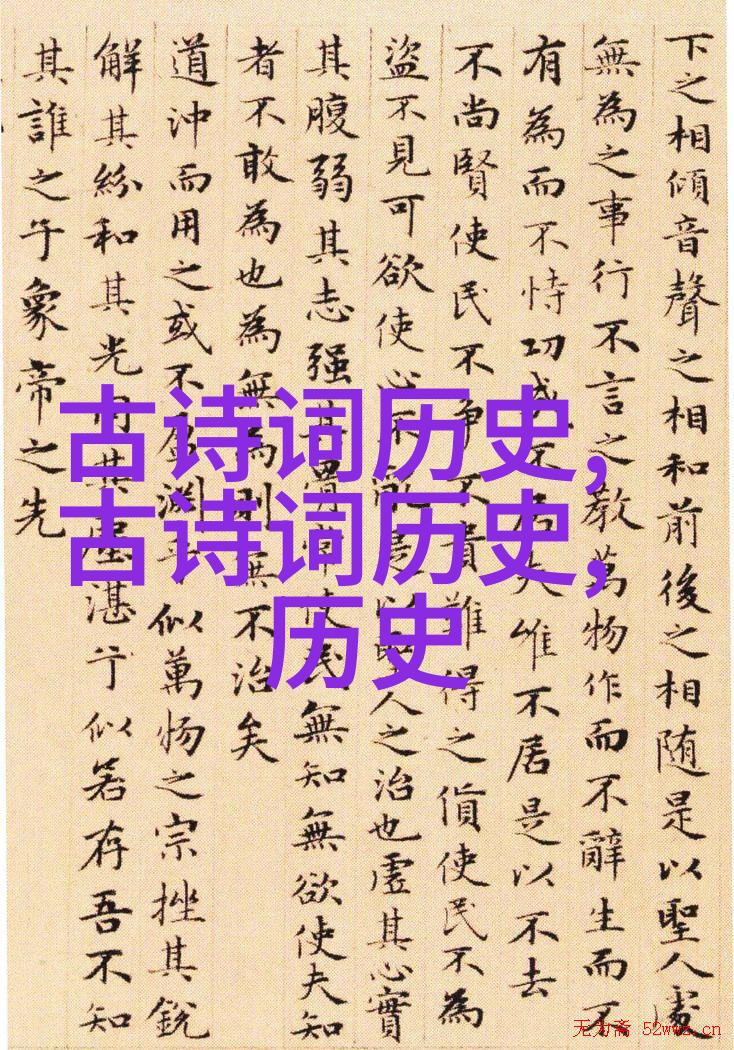 下之相傾音聲之相和前後之相随是以聖人處
無為之事行不言之教萬物作而不辭生而不
有為而不恃功成不居夫唯不居是以不去
不尚賢使民不争不貴難得之貨使民不為
盜不見可欲使心不亂是以聖人之治也虛其心實
其腹弱其志强其骨常使民無知無欲使夫知
者不敢為也為無為則無不治矣
道沖而用之或不盈淵乎似萬物之宗挫其銳
解其紛和其光同其塵湛兮似若存吾不知
其誰之子象帝之先
古诗词历史,
古诗词历史,
历史
无为斋 52wwz.cn